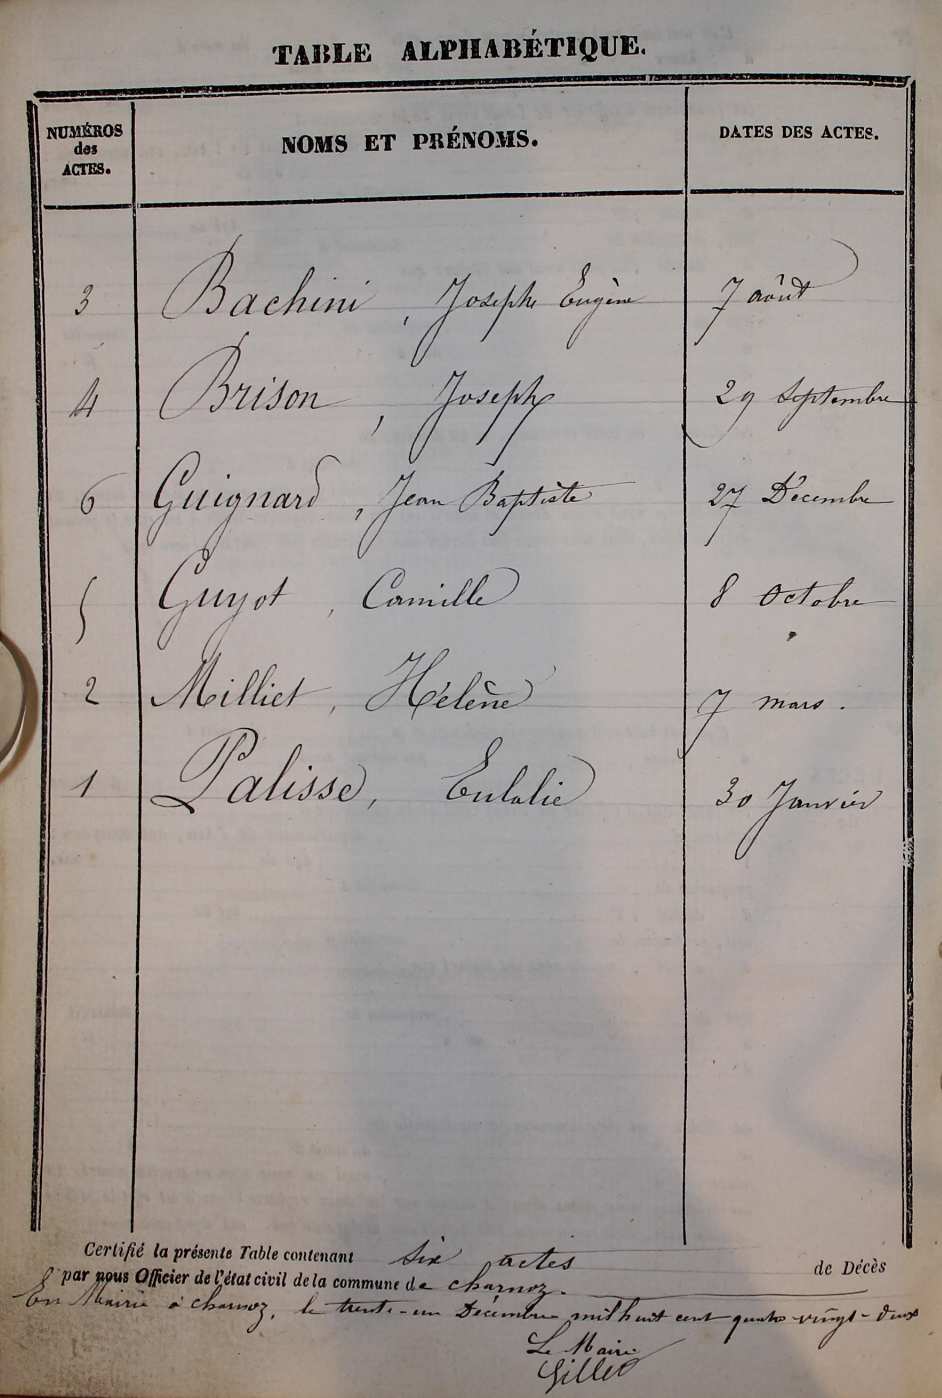 TABLE ALPHABÉTIQUE.
NUMÉROS des ACTES. NOMS ET PRÉNOMS. DATES DES ACTES.
3 Bachini, Joseph Eugène 7 août
4 Brison, Joseph 29 Septembre
6 Guignard, Jean Baptiste 27 Décembre
5 Guyot, Camille 8 Octobre
2 Milliet, Hélène 7 mars.
1 Palisse, Eulalie 30 Janvier
Certifié la présente Table contenant six actes de Décès
par nous Officier de l'état civil de la commune de charnoz.
En Mairie à charnoz, le trente-un Décembre mil huit cent quatre-vingt-deux
Le Maire
Gillet